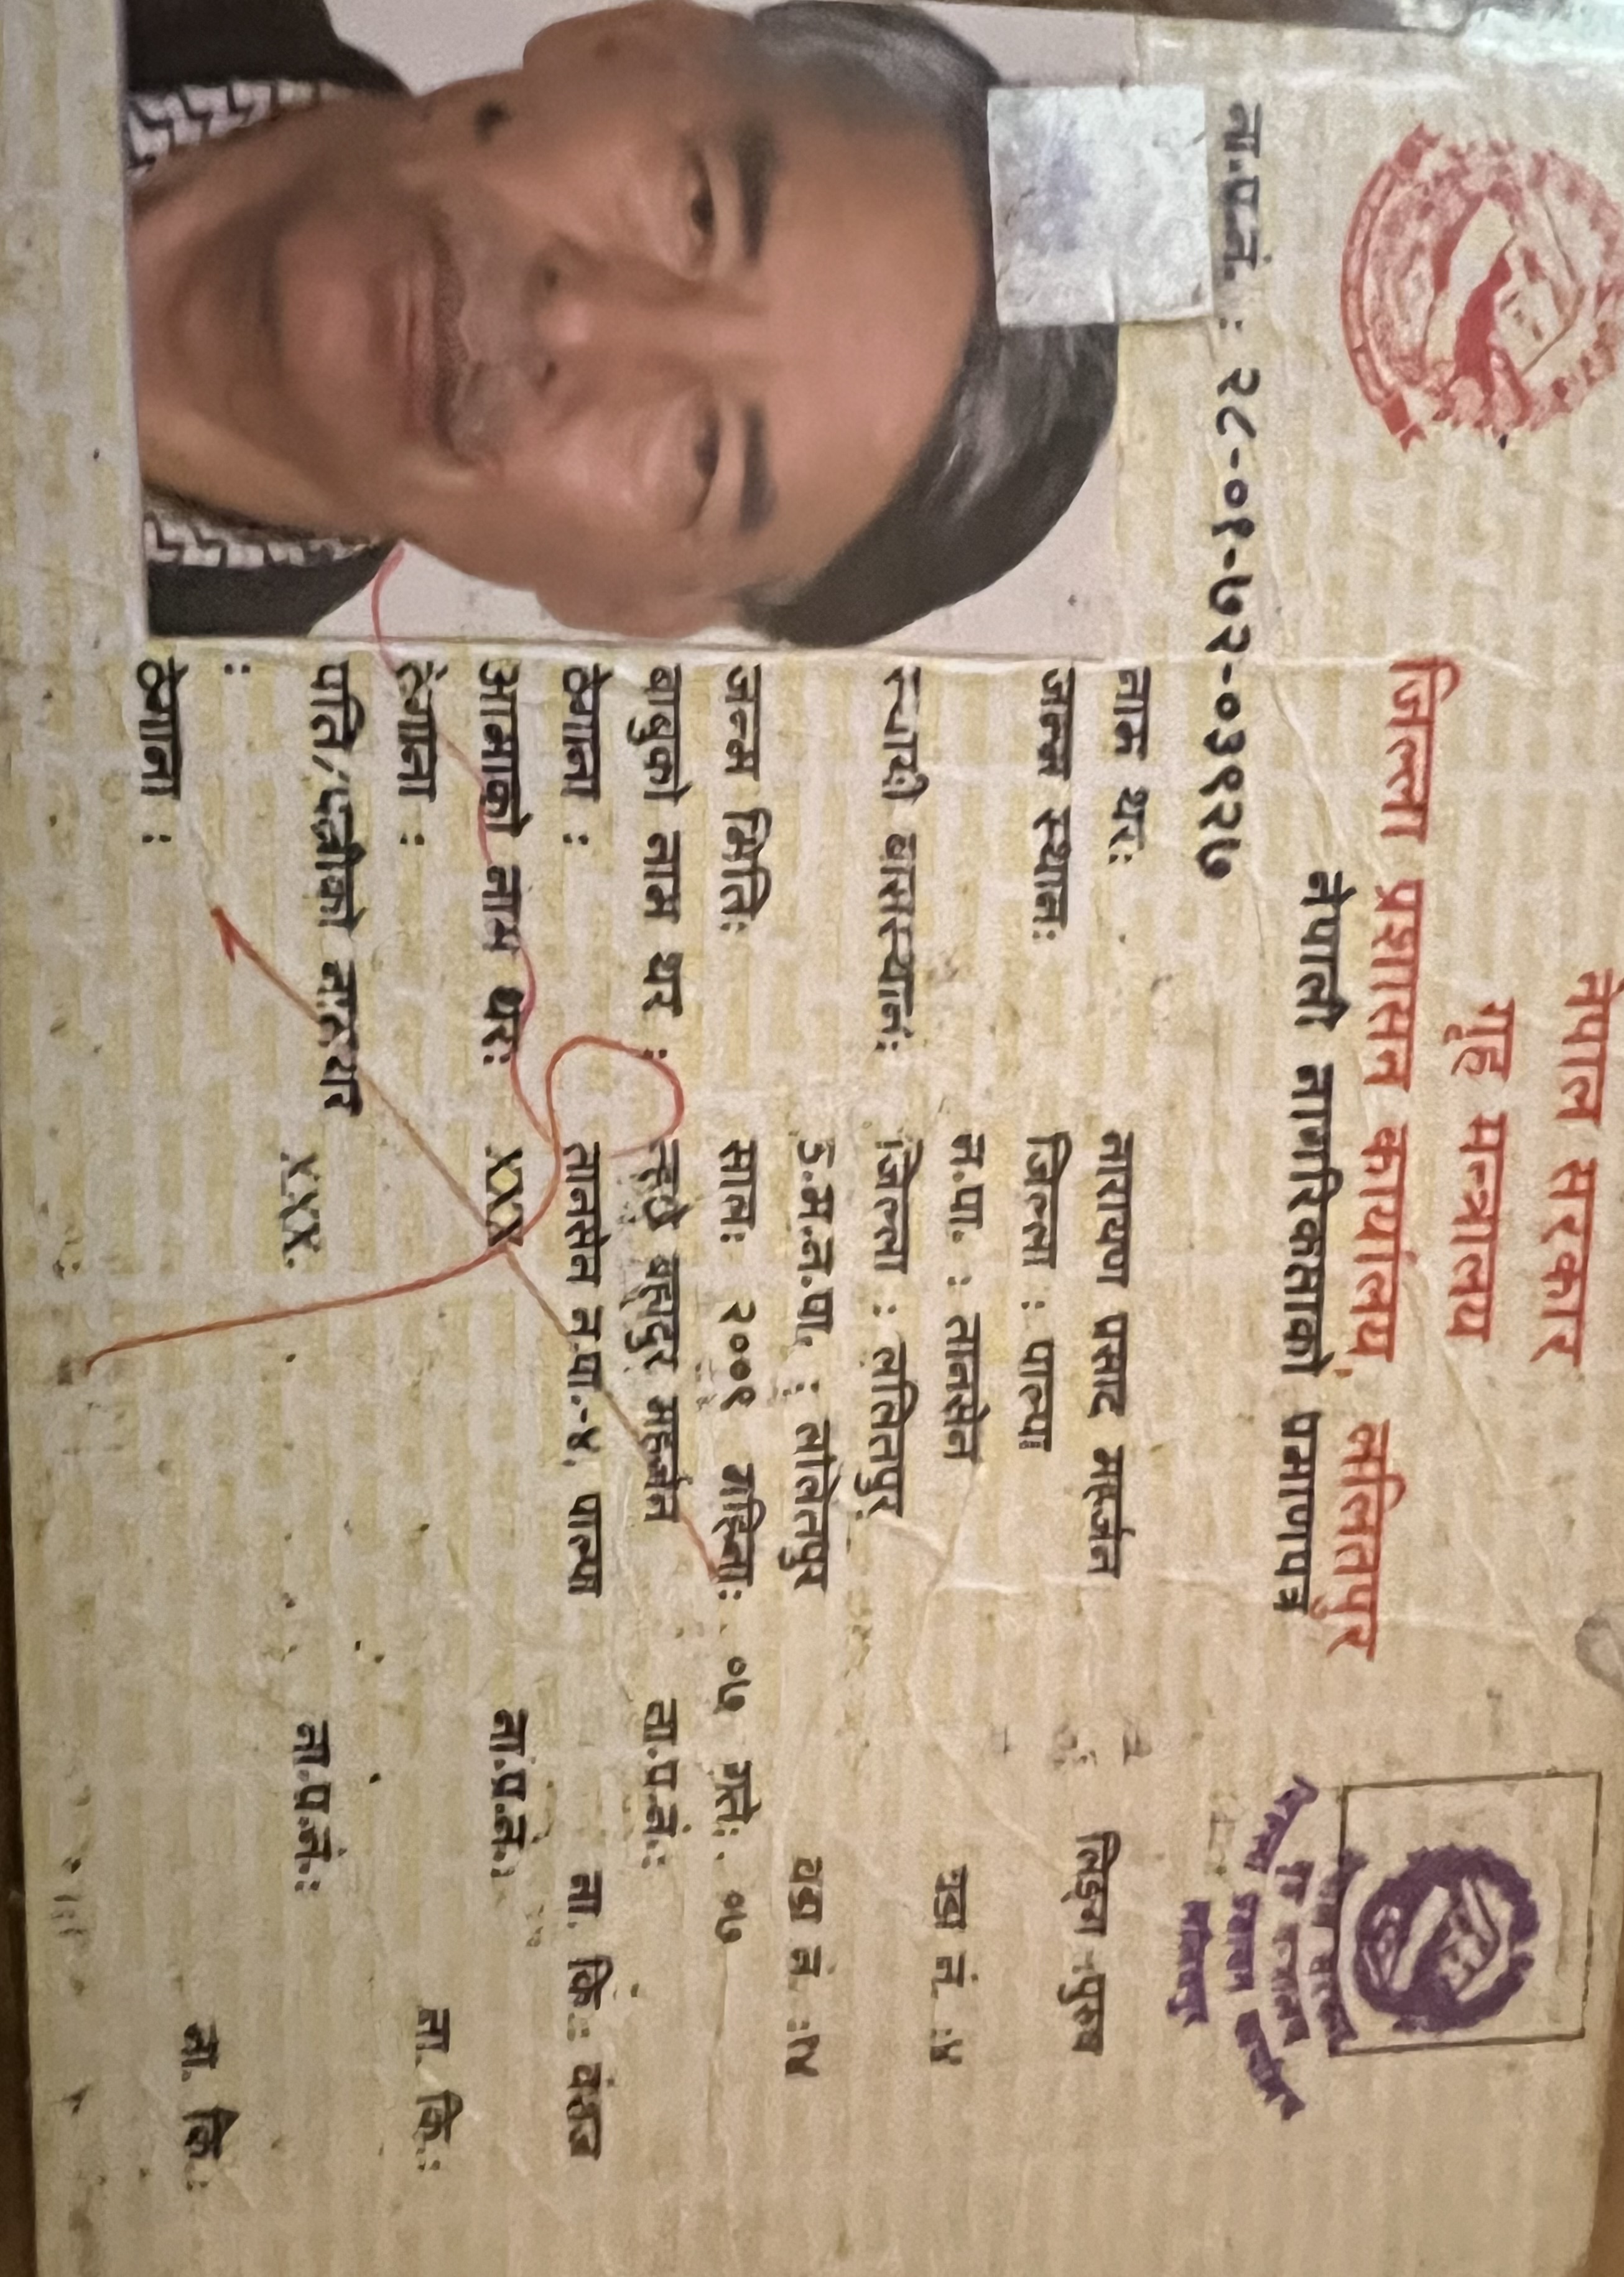 नेपाल सरकार
गृह मन्त्रालय
जिल्ला प्रशासन कार्यालय, ललितपुर
नेपाली नागरिकताको प्रमाणपत्र
ना.प्र.नं. : २८-०१-७२-०३९२७
नेपाल सरकार
गृह मन्त्रालय
जिल्ला प्रशासन कार्यालय
ललितपुर
नाम थर: नारायण प्रसाद महर्जन लिङ्ग :पुरुष
जन्म स्थान: जिल्ला : पाल्पा
न.पा. : तानसेन वडा नं. :४
स्थायी बासस्थान: जिल्ला : ललितपुर
उ.म.न.पा. : ललितपुर वडा नं. :
जन्म मिति: साल: २००९ महिना: ०७ गते: ०७
बाबुको नाम थर : बहादुर महर्जन ना.प्र.नं.:
ठेगाना : तानसेन न.पा.-४, पाल्पा ना. कि.: वंशज
आमाको नाम थर: XXX ना.प्र.नं.:
ठेगाना : ना. कि.:
पति/पत्नीको नाम थर
: XXX. ना.प्र.नं.:
ठेगाना : ना. कि.: